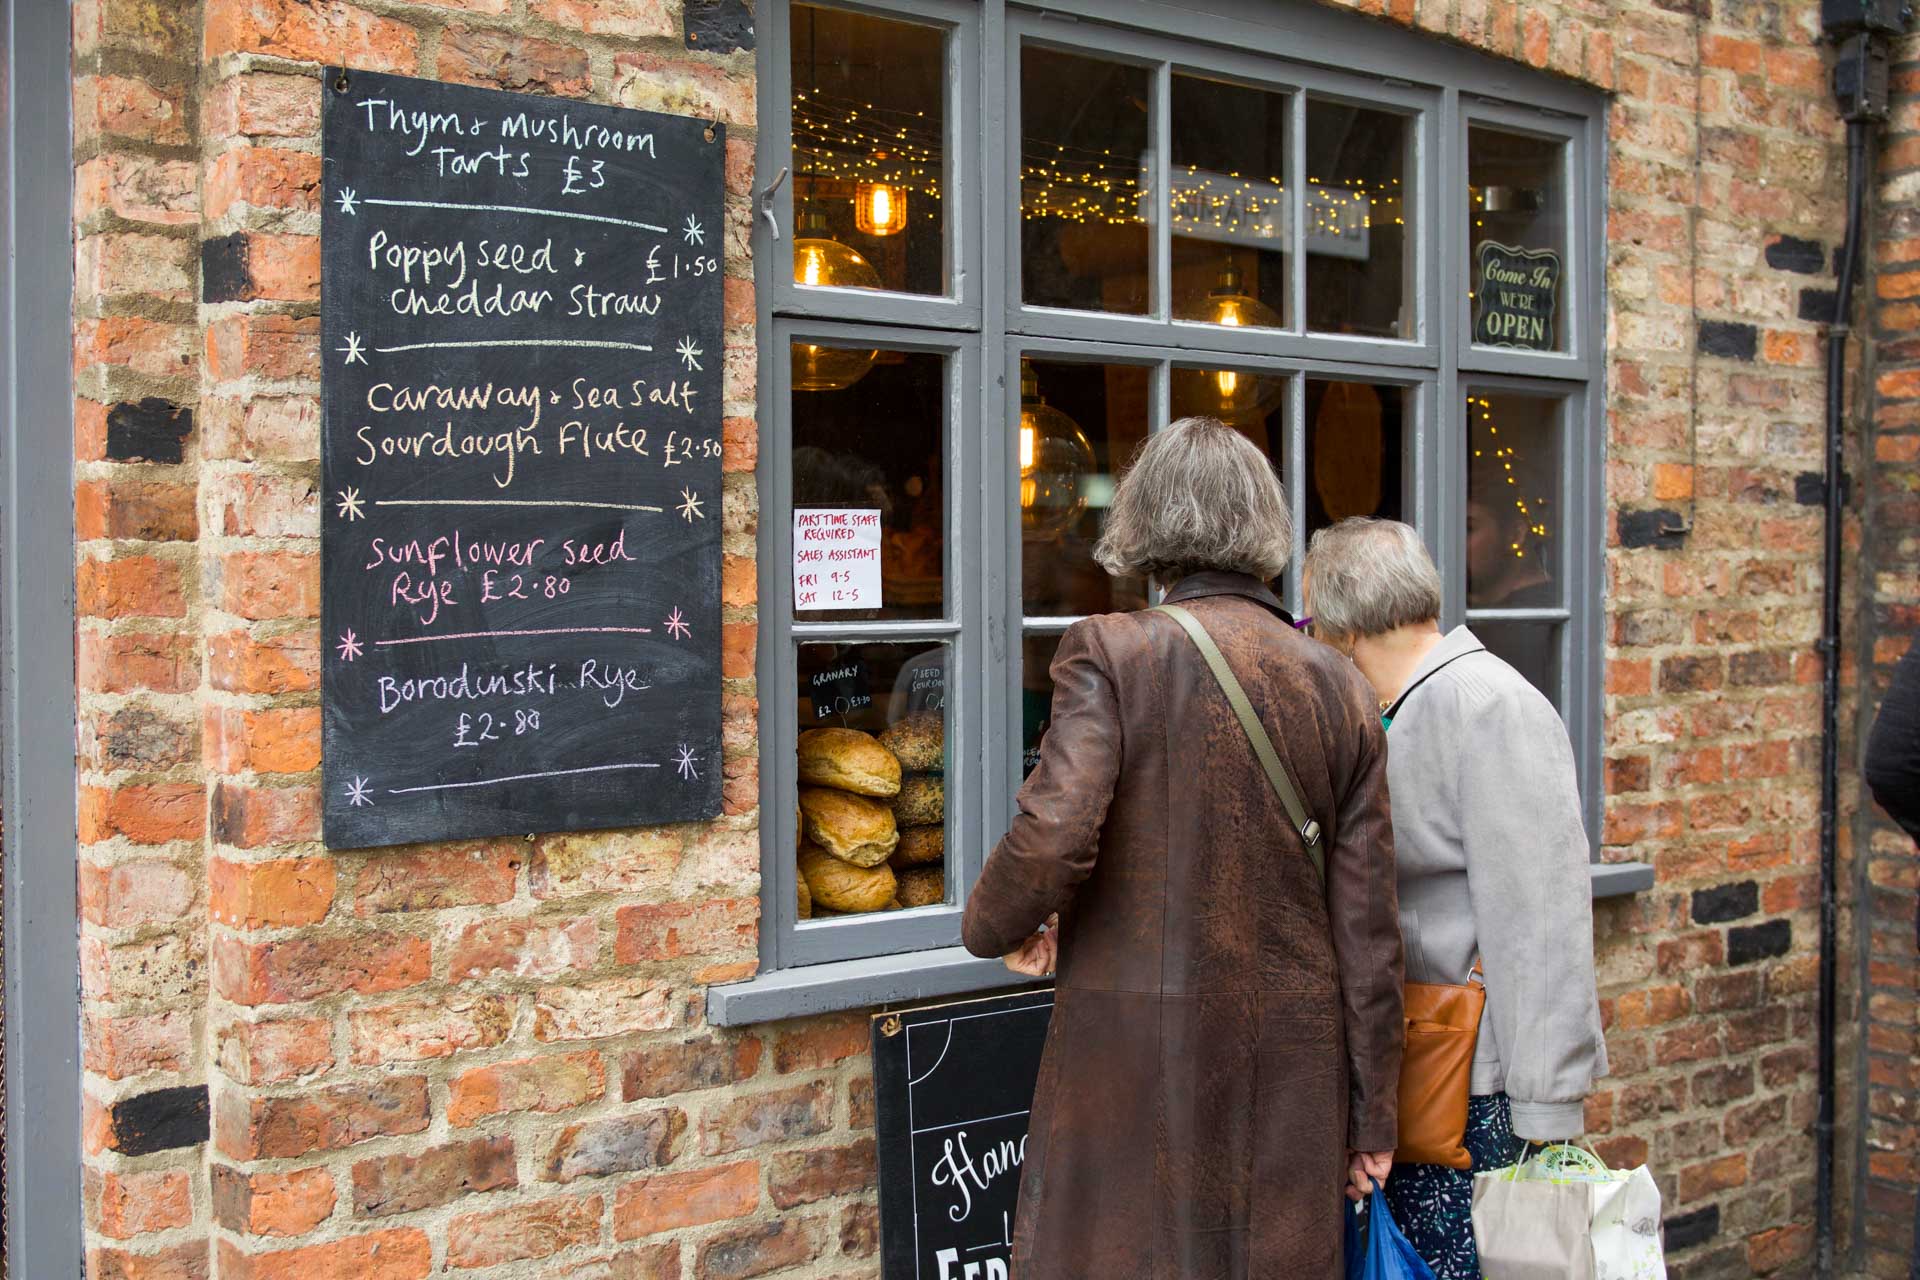 Thyme & Mushroom
Tarts £3
Poppy seed & £1.50
Cheddar Straw
Caraway & Sea Salt
Sourdough Flute £2.50
Sunflower seed
Rye £2.80
Borodunski Rye
£2.80
PART TIME STAFF
REQUIRED
SALES ASSISTANT
FRI 9-5
SAT 12-5
GRANARY
£2 £3.30
7 SEED
Come In
WE'RE
OPEN